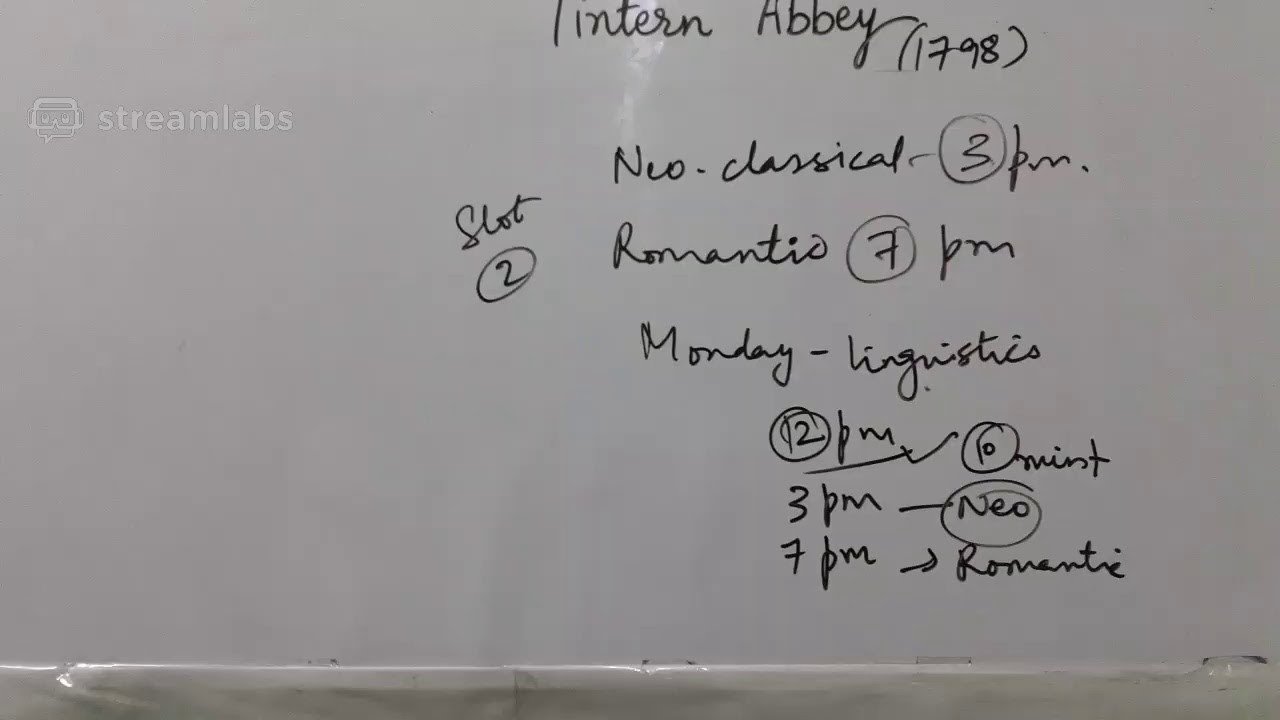 Tintern Abbey (1798)
streamlabs
Neo-classical - 3 pm.
Slot
2
Romantic 7 pm
Monday - linguistics
12 pm 10 mint
3 pm - Neo
7 pm → Romantic